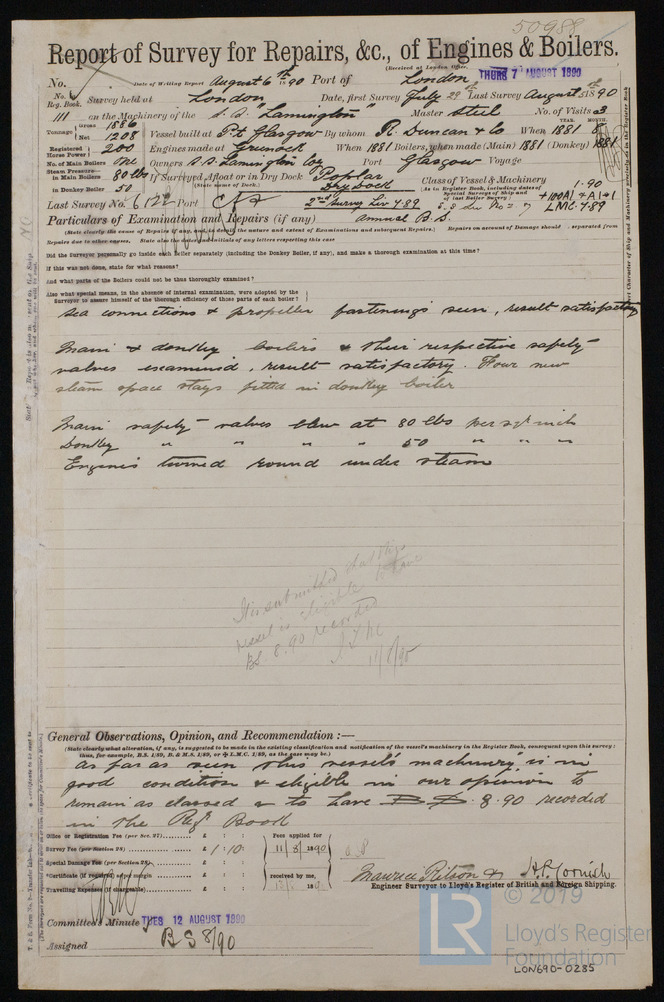 50988
Report of Survey for Repairs, &c., of Engines & Boilers.
(Received at London Office, THURS 7 AUGUST 1890
No. Date of Writing Report August 6th 90 Port of London
No. in Reg. Book. Survey held at London Date, first Survey July 29th Last Survey August 5th 1890
111 on the Machinery of the S.S. "Lamington" Master Steel No. of Visits 3
Tonnage Gross 1886 Net 1208 Vessel built at Pt Glasgow By whom R. Duncan & Co When 1881 8
YEAR. MONTH.
Registered Horse Power 200 Engines made at Greenock When 1881 Boilers, when made (Main) 1881 (Donkey) 1881
No. of Main Boilers One Owners S.S. Lamington Coy Port Glasgow Voyage
Steam Pressure in Main Boilers 80 lbs if Surveyed Afloat or in Dry Dock Poplar Dry Dock
(State name of Dock.)
in Donkey Boiler 50
Class of Vessel & Machinery
(As in Register Book, including dates of Special Surveys of Ship and of last Boiler Survey)
1.90
+100A1 & A1 & 1
LMC. 4.89
Last Survey No. 6122 Port 2nd Survey Liv 4.89
Particulars of Examination and Repairs (if any) annual B.S.
Repairs on account of Damage should separated from
Repairs due to other causes,
Did the Surveyor personally go inside each Boiler separately (including the Donkey Boiler, if any), and make a thorough examination at this time?
If this was not done, state for what reasons?
And what parts of the Boilers could not be thus thoroughly examined?
Also what special means, in the absence of internal examination, were adopted by the Surveyor to assure himself of the thorough efficiency of those parts of each boiler?
Sea connections & propeller fastenings seen, result satisfactory
Main & donkey boilers & their respective safety-
valves examined, result satisfactory. Four new
steam space stays fitted in donkey boiler
Main safety-valves blew at 80 lbs per sqr inch
Donkey " " " " 50 " " "
Engines turned round under steam
It is submitted that this
vessel is eligible to have
BS 8.90 recorded
11/8/90
General Observations, Opinion, and Recommendation :—
(State clearly what alteration, if any, is suggested to be made in the existing classification and notification of the vessel's machinery in the Register Book, consequent upon this survey:
thus, for example, B.S. 1/89, B. & M.S. 1/89, or L.M.C. 1/89, as the case may be.)
As far as seen this vessel's machinery is in
good condition & eligible in our opinion to
remain as classed & to have B.S. 8.90 recorded
in the Regr Book
Office or Registration Fee (per Sec. 27) £ : :
Survey Fee (per Section 28) £ 1 : 10 :
Special Damage Fee (per Section 28) £ : :
Certificate (if required) as per margin £ : :
Travelling Expenses (if chargeable) £ : :
Fees applied for
11/8/1890
received by me,
Maurice Ritson & H.P. Cornish
Engineer Surveyor to Lloyd's Register of British and Foreign Shipping.
Committee's Minute TUES 12 AUGUST 1890
Assigned BS 8/90
© 2019
LR
Lloyd's Register
Foundation
LON690-0285